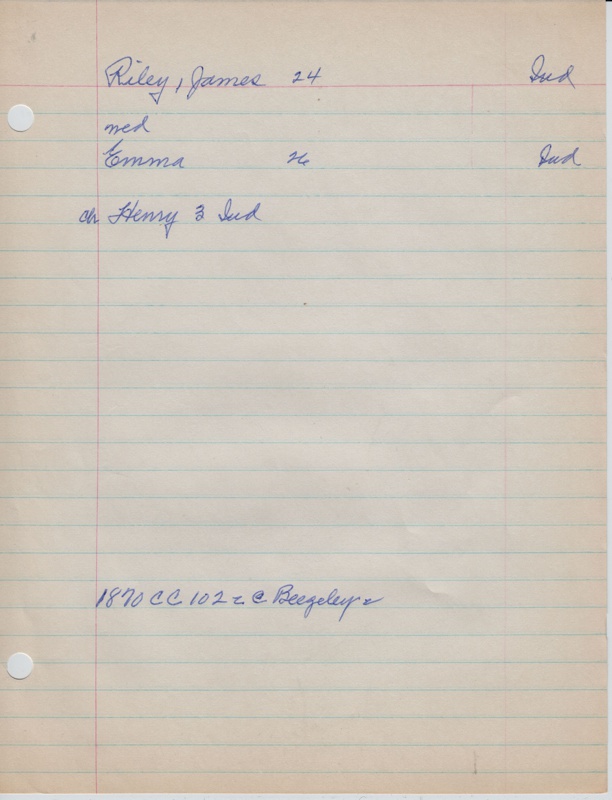 Riley, James 24 Ind
med
Emma 26 Ind
ch Henry 3 Ind
1870 CC 102 & C Beegeley